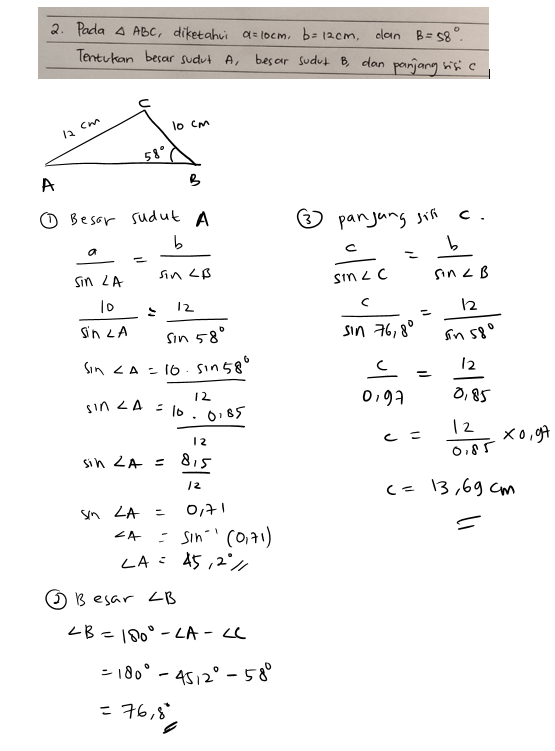 2. Pada △ ABC, diketahui a=10cm, b=12cm, dan B=58°.
Tentukan besar sudut A, besar sudut B, dan panjang sisi c
C
12 cm
10 cm
58°
A
B
① Besar sudut A
a/sin ∠A = b/sin ∠B
10/sin ∠A = 12/sin 58°
sin ∠A = 10 . sin 58°/12
sin ∠A = 10 . 0,85/12
sin ∠A = 8,5/12
sin ∠A = 0,71
∠A = sin⁻¹ (0,71)
∠A = 45,2°//
② Besar ∠B
∠B = 180° - ∠A - ∠C
= 180° - 45,2° - 58°
= 76,8°
③ panjang sisi c.
c/sin ∠C = b/sin ∠B
c/sin 76,8° = 12/sin 58°
c/0,97 = 12/0,85
c = 12/0,85 × 0,97
c = 13,69 cm